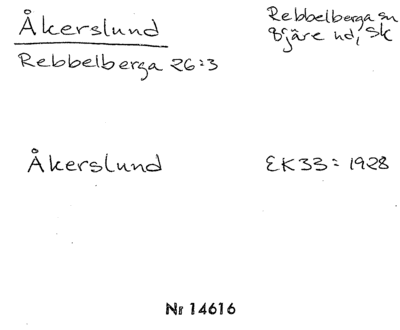 Åkerslund
Rebbelberga sn
Bjäre hd, Sk
Rebbelberga 26:3
Åkerslund
EK33: 1928
Nr 14616